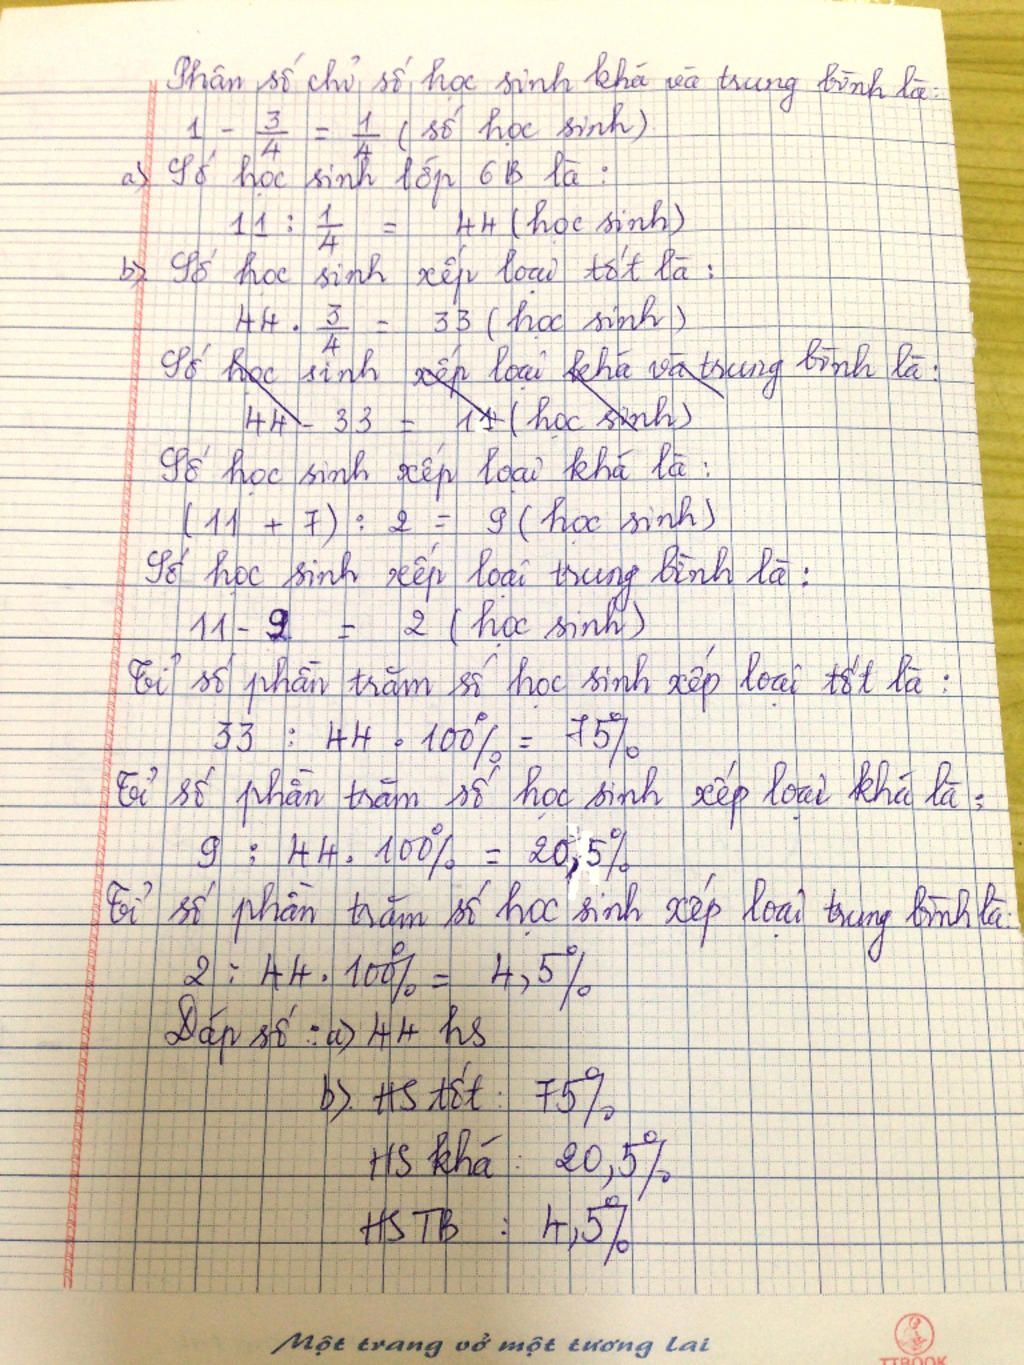 Phân số chỉ số học sinh khá và trung bình là:
1 - 3/4 = 1/4 (số học sinh)
a) Số học sinh lớp 6B là:
11 : 1/4 = 44 (học sinh)
b) Số học sinh xếp loại tốt là:
44 . 3/4 = 33 (học sinh)
Số học sinh xếp loại khá và trung bình là:
44 - 33 = 11 (học sinh)
Số học sinh xếp loại khá là:
(11 + 7) : 2 = 9 (học sinh)
Số học sinh xếp loại trung bình là:
11 - 9 = 2 (học sinh)
Tỉ số phần trăm số học sinh xếp loại tốt là:
33 : 44 . 100% = 75%
Tỉ số phần trăm số học sinh xếp loại khá là:
9 : 44 . 100% = 20,5%
Tỉ số phần trăm số học sinh xếp loại trung bình là:
2 : 44 . 100% = 4,5%
Đáp số : a) 44 hs
b). HS tốt : 75%
HS khá : 20,5%
HS TB : 4,5%
Một trang vở một tương lai
TTBOOK